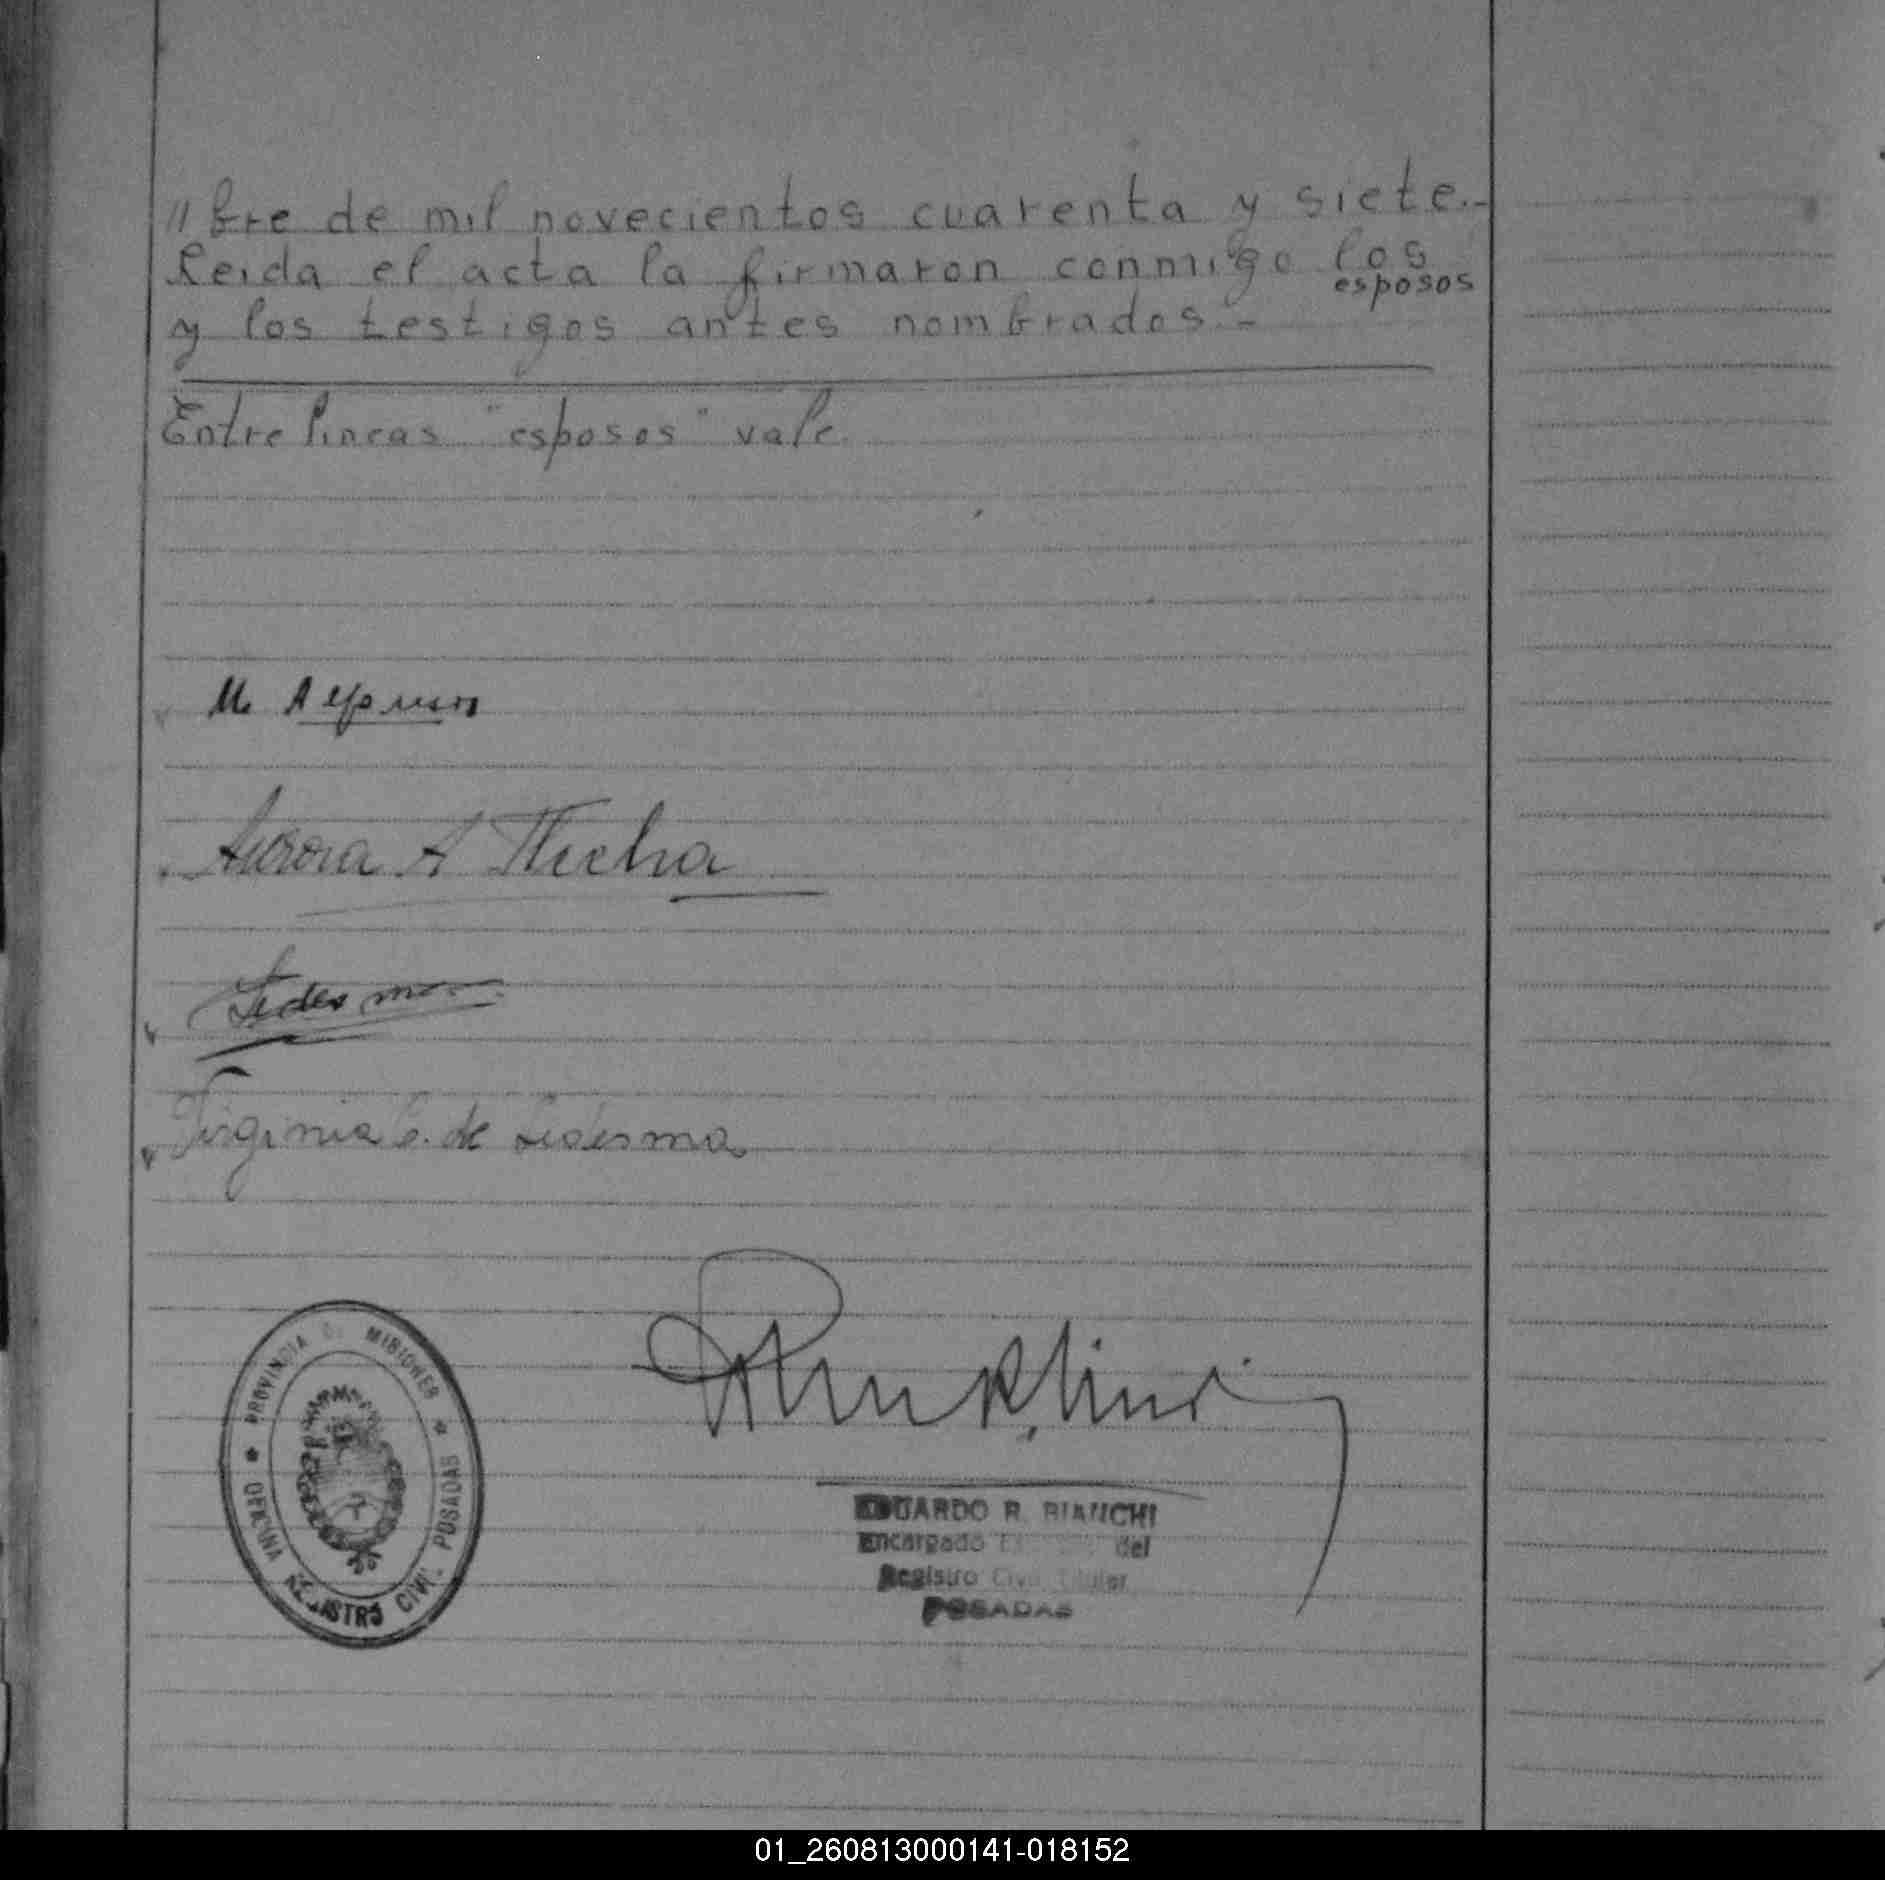 "bre de mil novecientos cuarenta y siete.-
Leida el acta la firmaron conmigo los
esposos
y los testigos antes nombrados.-
Entre lineas "esposos" vale
M. Alfonso
Aurora A
Ledesma
Virginia de Ledesma
PROVINCIA DE MISIONES * POSADAS
* OFICINA REGISTRO CIVIL
EDUARDO R. BIANCHI
Encargado del
Registro Civil Titular
POSADAS
01_260813000141-018152